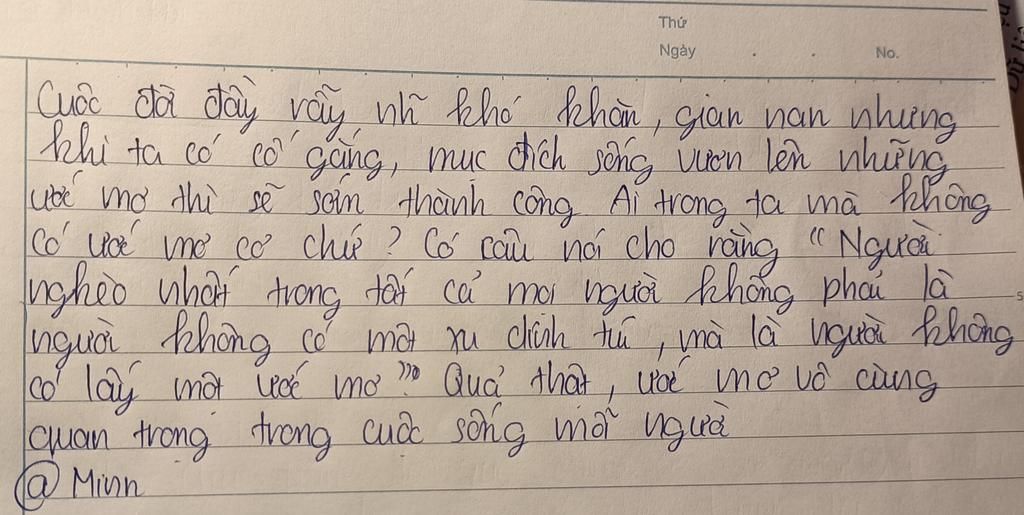 Thứ
Ngày . . No.
Cuộc đời đầy rẫy nhữ khó khăn, gian nan nhưng
khi ta có cố gắng, mục đích sống vươn lên những
ước mơ thì sẽ sớm thành công Ai trong ta mà không
có ước mơ cơ chứ? Có câu nói cho rằng "Người
nghèo nhất trong tất cả mọi người không phải là
người không có một xu dính túi, mà là người không
có lấy một ước mơ". Quả thật, ước mơ vô cùng
quan trọng trong cuộc sống mỗi người
@ Minn